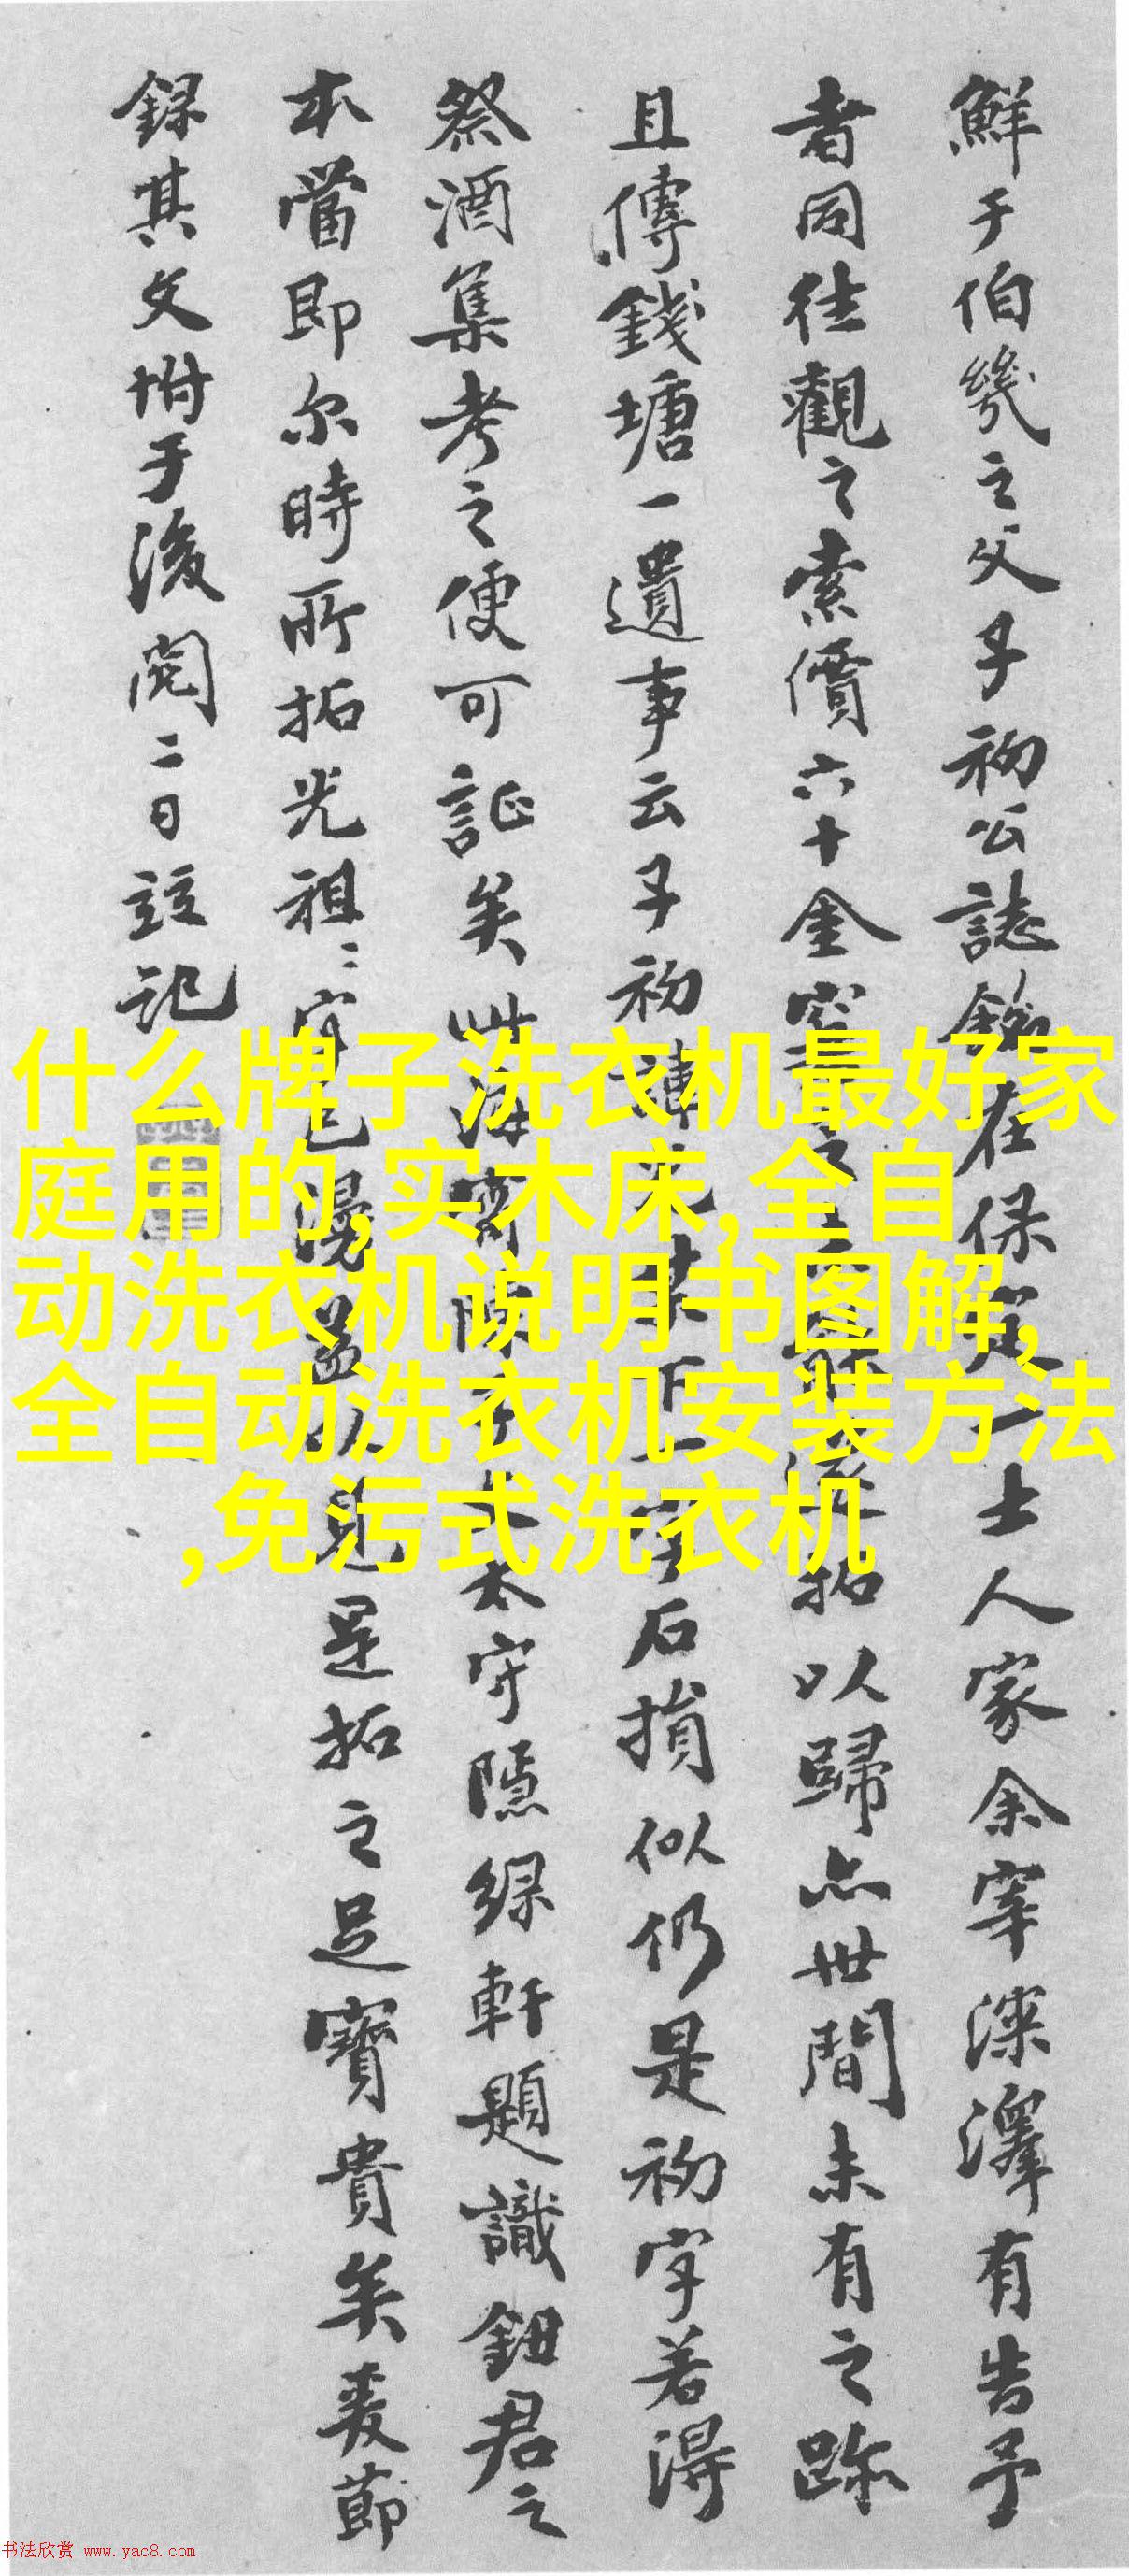 鮮于伯幾之父子初公誌銘在保定一士人家余宰深澤有告予
者同往觀之索價六十金
拓以歸亦世間未有之跡
且傳錢塘一遺事云子初
字石損似仍是初字若得
祭酒集考之便可証矣
太守隱綠軒題識鈕君之
本當即尔時所拓光祖
是拓之足寶貴矣爰節
錄其文坿于後閱二日竝記
什么牌子洗衣机最好家
庭用的,实木床,全自
动洗衣机说明书图解,
全自动洗衣机安装方法
,免污式洗衣机
书法欣赏 www.yac8.com